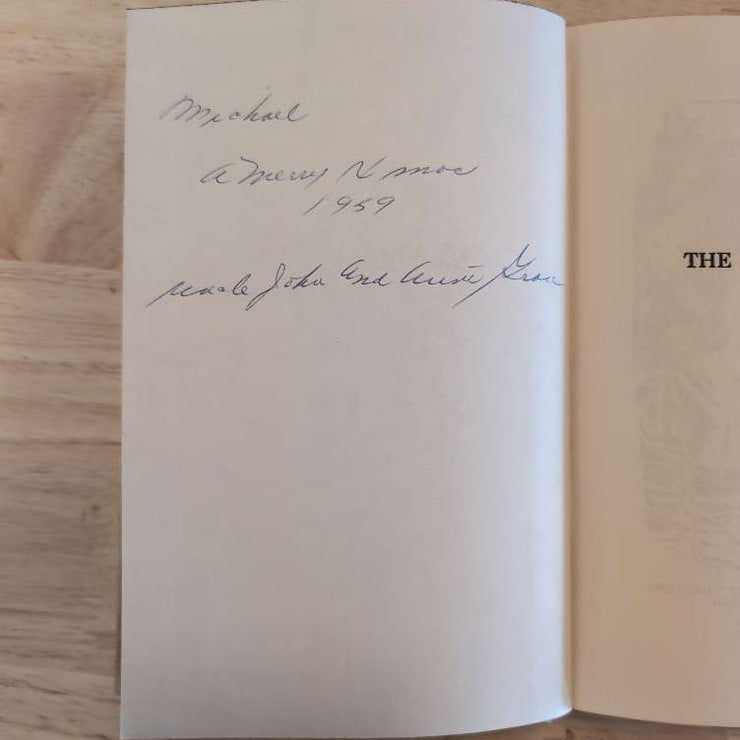 Michael
a Merry Xmas
1959
Uncle John and Aunt
THE